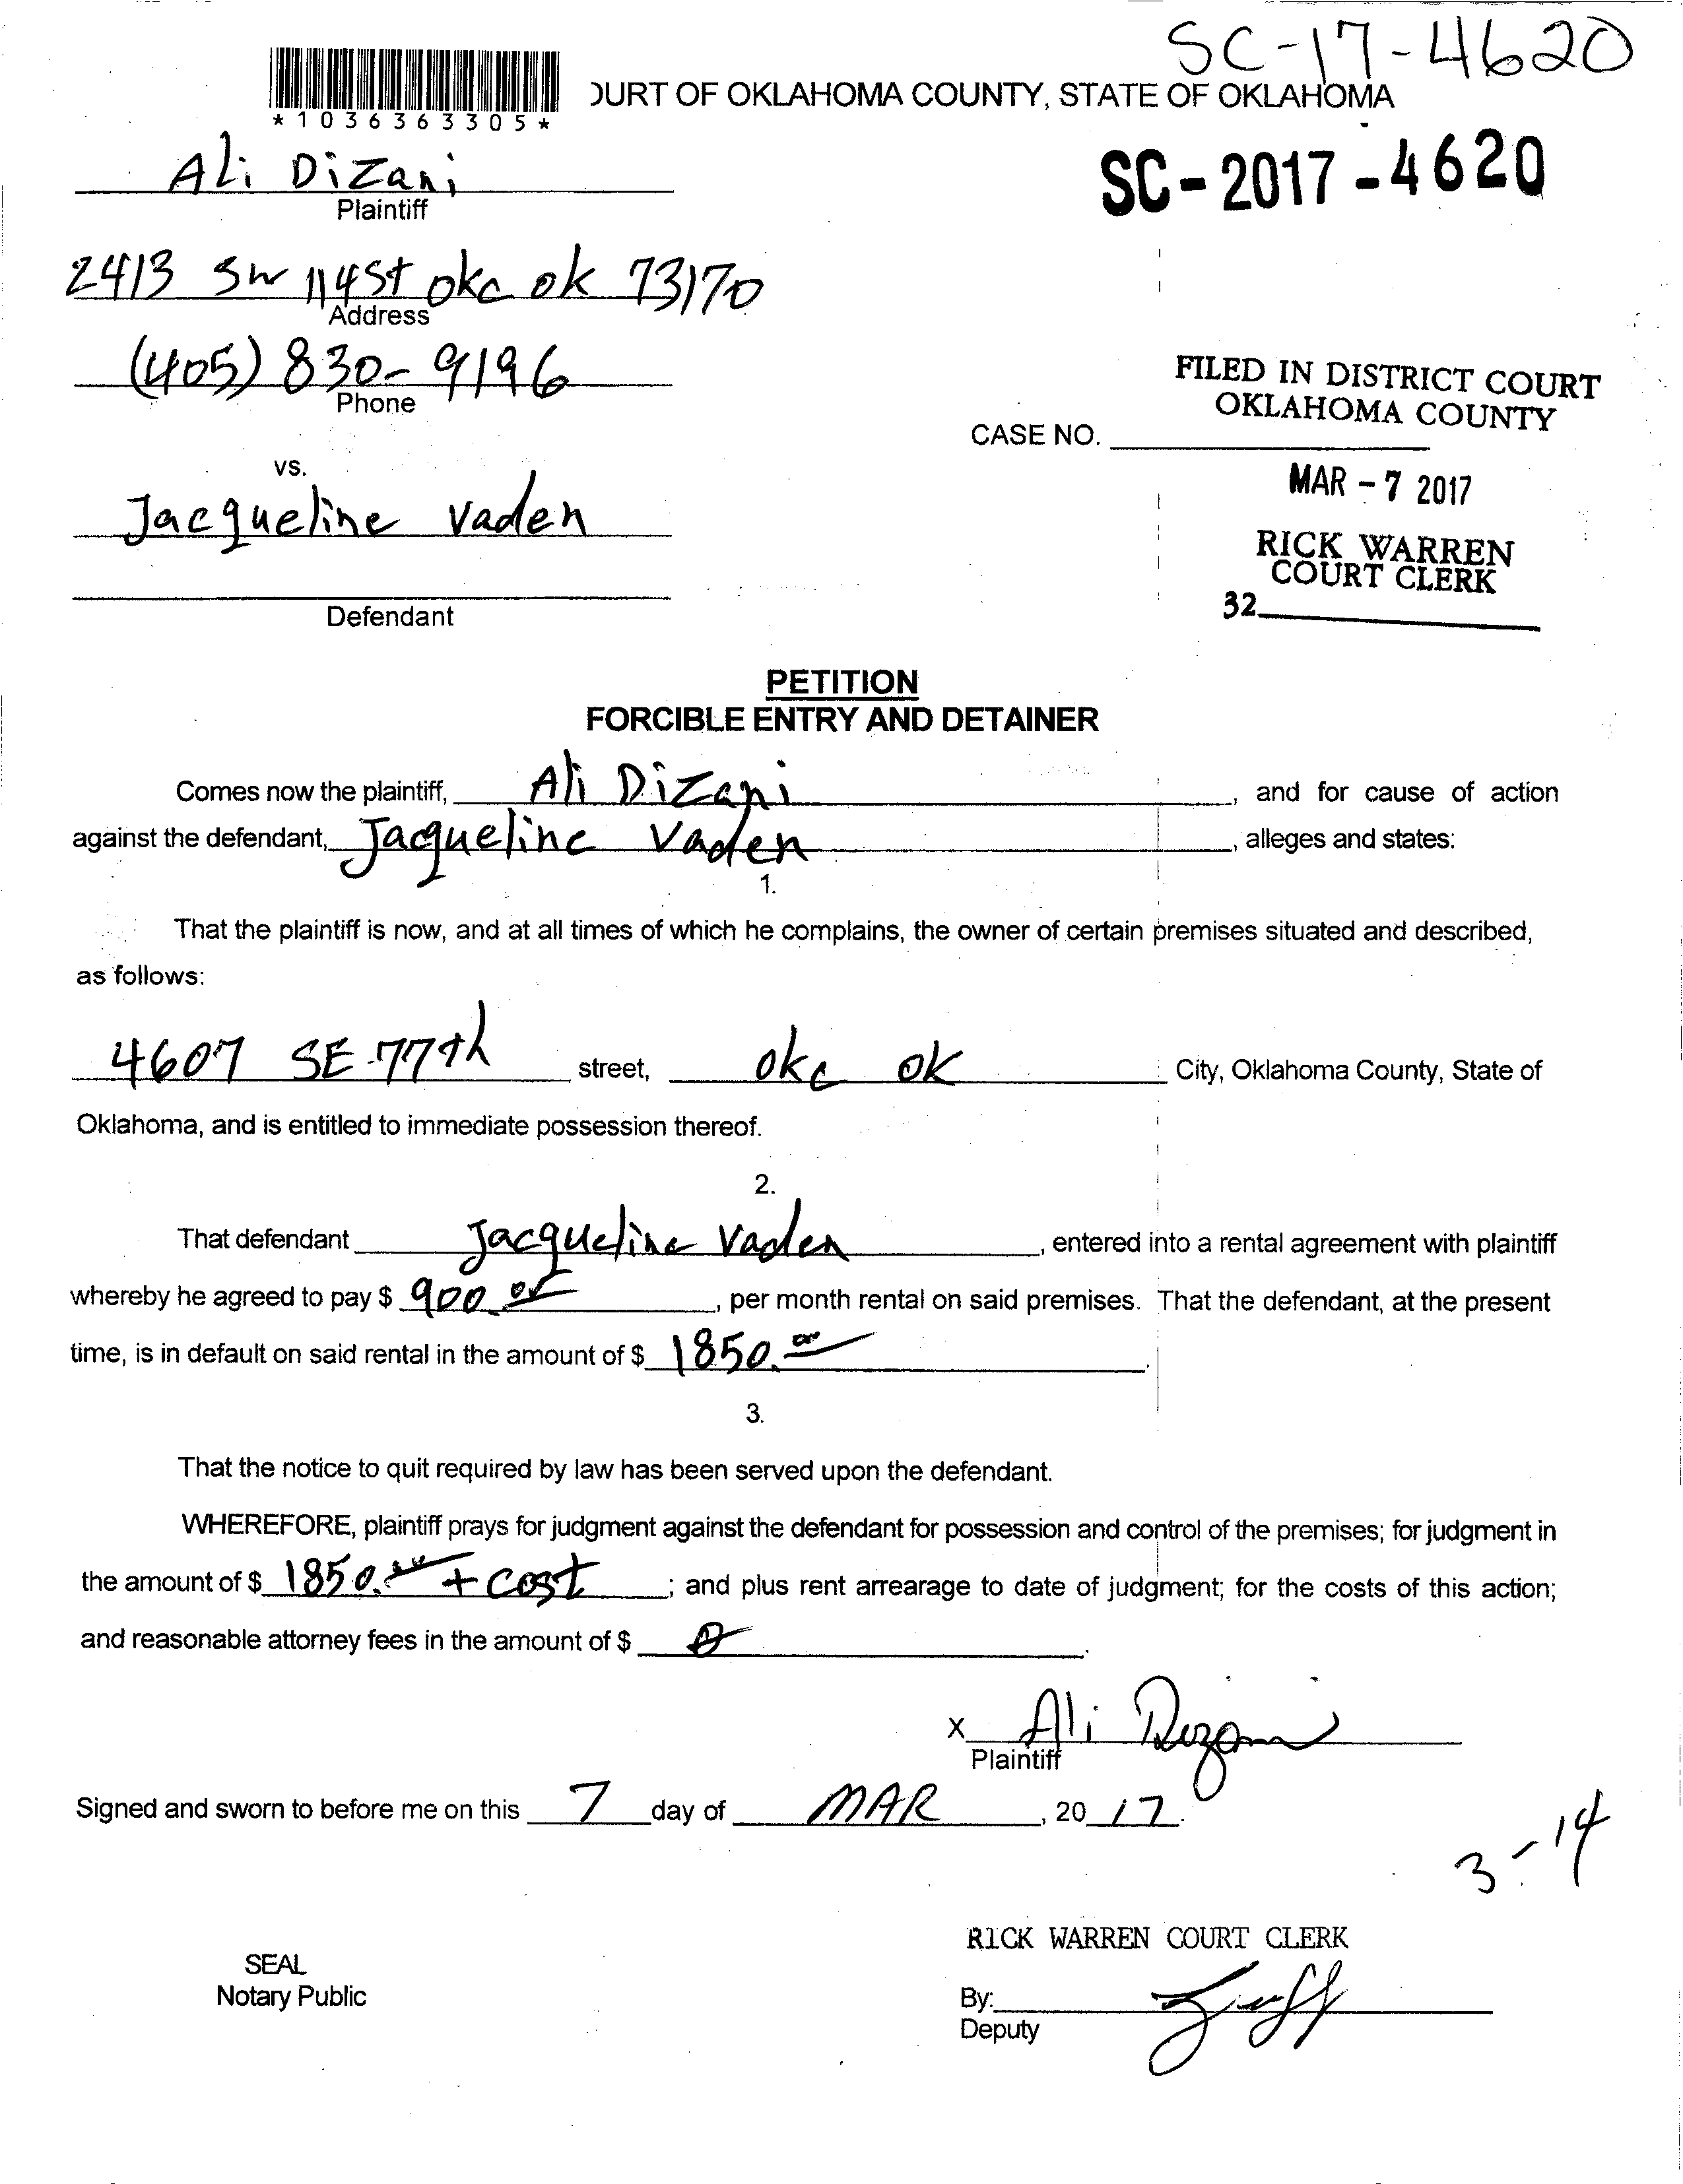 SC-17-4620
OURT OF OKLAHOMA COUNTY, STATE OF OKLAHOMA
*1036363305*
Ali Dizani
Plaintiff
SC-2017-4620
2413 SW 114St okc ok 73170
Address
(405) 830-9196
Phone
FILED IN DISTRICT COURT
OKLAHOMA COUNTY
CASE NO.
MAR -7 2017
vs.
Jacqueline Vaden
RICK WARREN
COURT CLERK
32
Defendant
PETITION
FORCIBLE ENTRY AND DETAINER
Comes now the plaintiff, Ali Dizani, and for cause of action
against the defendant, Jacqueline Vaden, alleges and states:
1.
That the plaintiff is now, and at all times of which he complains, the owner of certain premises situated and described,
as follows:
4607 SE 77th street, okc ok City, Oklahoma County, State of
Oklahoma, and is entitled to immediate possession thereof.
2.
That defendant Jacqueline Vaden, entered into a rental agreement with plaintiff
whereby he agreed to pay $ 900.00, per month rental on said premises. That the defendant, at the present
time, is in default on said rental in the amount of $ 1850.00.
3.
That the notice to quit required by law has been served upon the defendant.
WHEREFORE, plaintiff prays for judgment against the defendant for possession and control of the premises; for judgment in
the amount of $ 1850.00 + cost; and plus rent arrearage to date of judgment; for the costs of this action;
and reasonable attorney fees in the amount of $ 0.
X Ali Dizani
Plaintiff
Signed and sworn to before me on this 7 day of MAR, 2017.
3-14
RICK WARREN COURT CLERK
SEAL
Notary Public
By:
Deputy